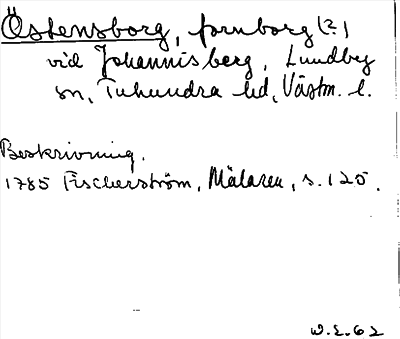 Östensborg, fornborg (?)
vid Johannisberg, Lundby
sn, Tuhundra hd, Västm. l.
Beskrivning.
1785 Fischerström, Mälaren, s. 125.
W.E.62